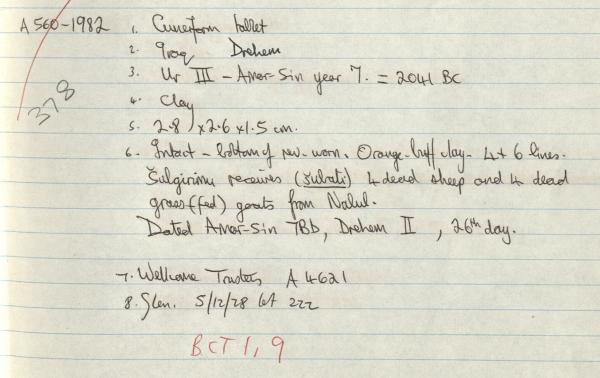 A 560-1982
378
1. Cuneiform tablet
2. Iraq Drehem
3. Ur III - Amar-Sin year 7. = 2041 BC
4. Clay
5. 2.8 x 2.6 x 1.5 cm.
6. Intact - bottom of rev. worn. Orange-buff clay - 4+6 lines.
Šulgirimu receives (šubati) 4 dead sheep and 4 dead
grass(fed) goats from Nalul.
Dated Amar-Sin 7BD, Drehem II , 26th day.
7. Wellcome Trustees A 4621
8. Slen. 5/12/28 lot 222
BCT 1, 9